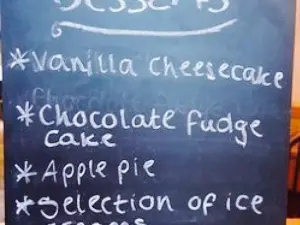 Desserts
* Vanilla cheesecake
* Chocolate fudge
cake
* Apple pie
* Selection of ice
creams